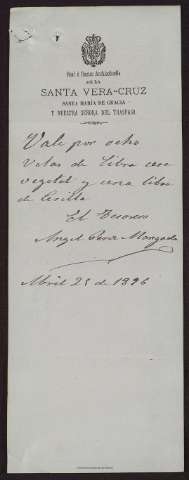 Real é Ilustre Archicofradía
DE LA
SANTA VERA-CRUZ
SANTA MARÍA DE GRACIA
Y NUESTRA SEÑORA DEL TRASPASO
Vale por ocho
Velas de libra cera
vegetal y cera libre
de Sevilla
El Tesorero
Angel
Abril 25 de 1896